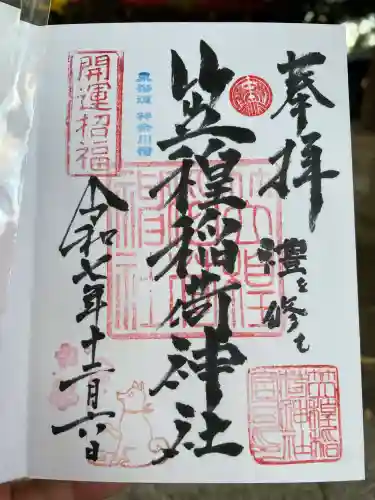 奉拝
禮を修む
笠䅣稲荷神社
東海道 神奈川宿
開運招福
令和七年十二月六日
笠䅣
稲荷
神社
笠䅣稲
荷神社
宮司之印